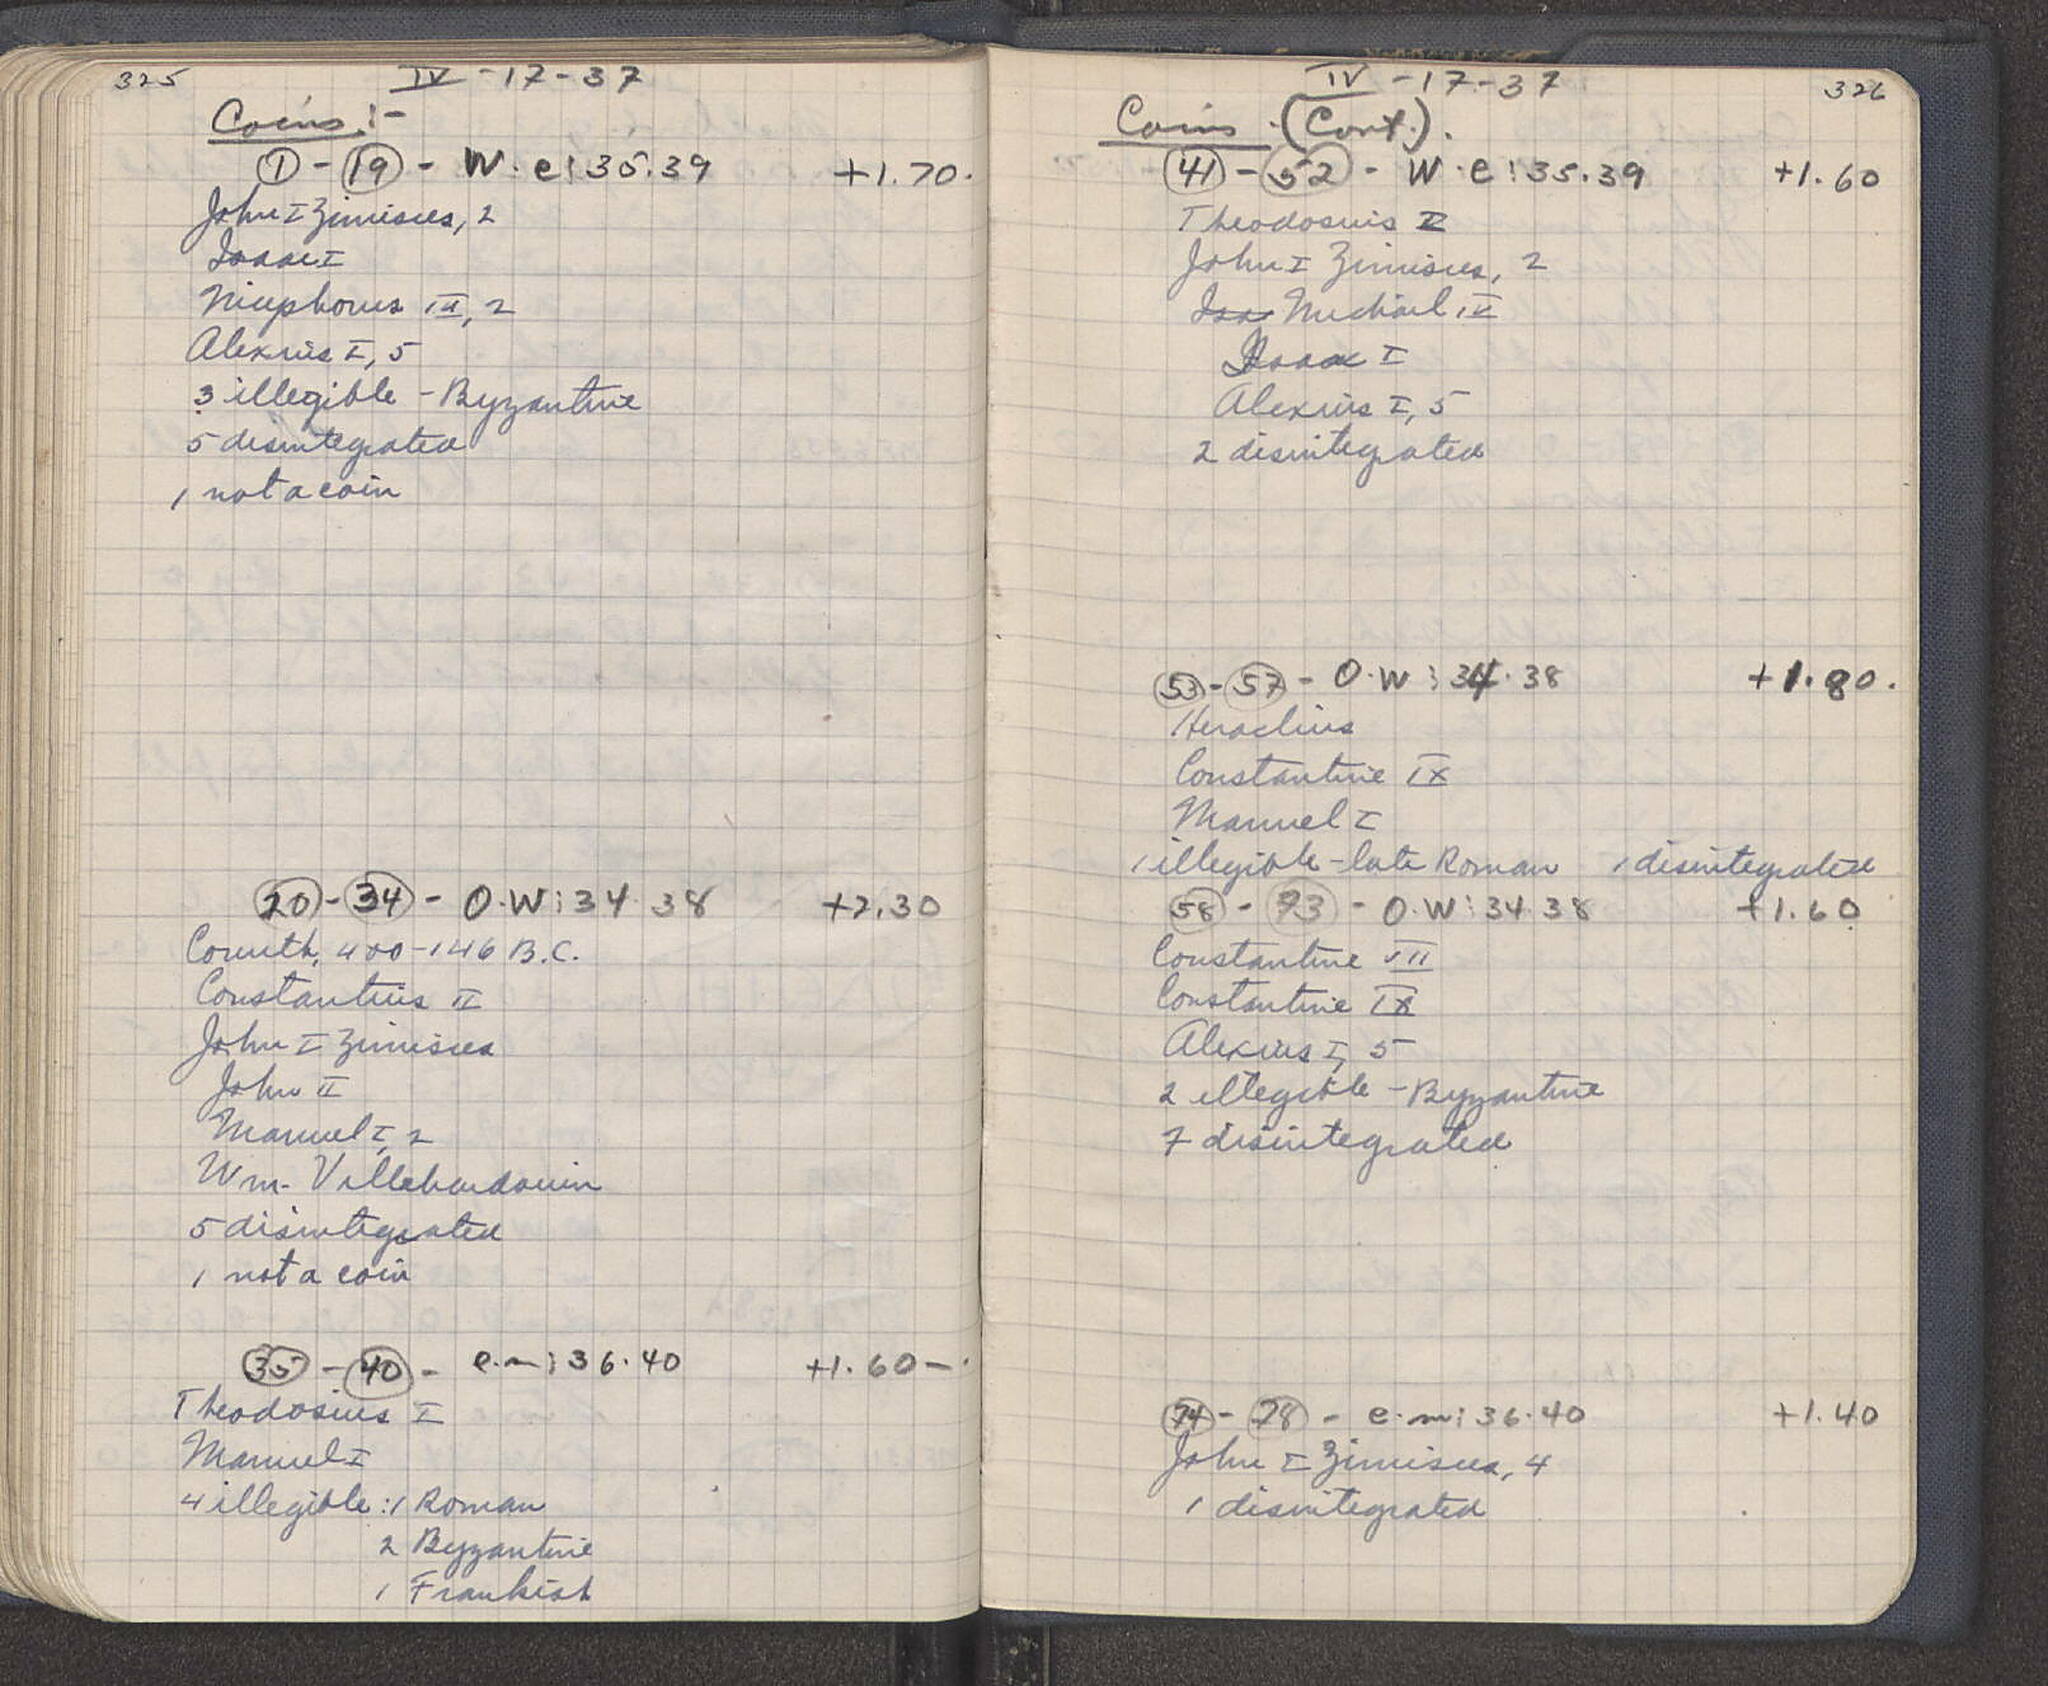 325
IV - 17 - 37
Coins :-
① - ⑲ - W.e: 35.39 +1.70.
John I Zimisces, 2
Isaac I
Nicephorus III, 2
Alexius I, 5
3 illegible - Byzantine
5 disintegrated
1 not a coin
⑳ - ㉞ - O.W: 34.38 +2.30
Corinth, 400-146 B.C.
Constantius II
John I Zimisces
John II
Manuel I, 2
Wm. Villehardouin
5 disintegrated
1 not a coin
㉟ - ㊵ - e.m: 36.40 +1.60-.
Theodosius I
Manuel I
4 illegible: 1 Roman
2 Byzantine
1 Frankish
IV - 17 - 37
326
Coins. (Cont.).
㊶ - 52 - W.e: 35.39 +1.60
Theodosius II
John I Zimisces, 2
Isaa Michael IV
Isaac I
Alexius I, 5
2 disintegrated
53 - 57 - O.W: 34.38 +1.80.
Heraclius
Constantine IX
Manuel I
1 illegible - late Roman 1 disintegrated
58 - 73 - O.W: 34.38 +1.60
Constantine VII
Constantine IX
Alexius I, 5
2 illegible - Byzantine
7 disintegrated
74 - 78 - e.m: 36.40 +1.40
John I Zimisces, 4
1 disintegrated